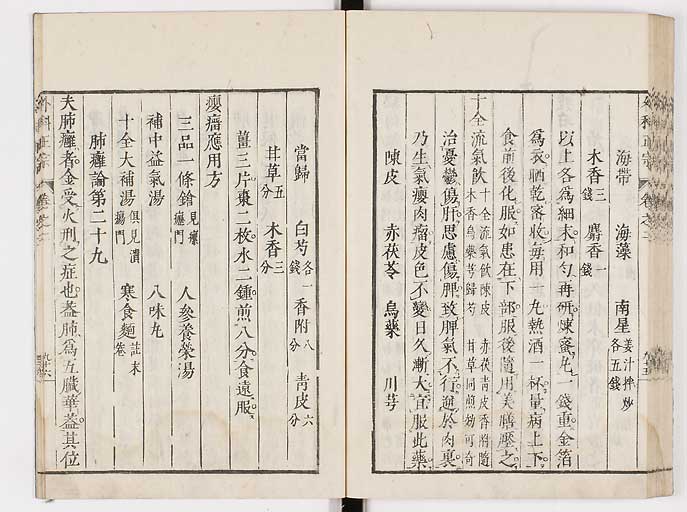 外科正宗　卷之二
海帶　海藻　南星姜汁拌炒各五錢
木香三錢　麝香一錢
以上各爲細末和勻再研煉蜜丸一錢重金箔
爲衣晒乾密收每用一丸熱酒一杯量病上下
食前後化服如患在下部服後隨用美膳壓之
十全流氣飲十全流氣飲陳皮　赤茯青皮香附隨木香烏藥芎歸芍　甘草同煎効可奇
治憂鬱傷肝思慮傷脾致脾氣不行逆於肉裏
乃生氣癭肉瘤皮色不變日久漸大宜服此藥
陳皮　赤茯苓　烏藥　川芎
當歸　白芍各一錢　香附八分　青皮六分
甘草五分　木香三分
薑三片棗二枚水二鍾煎八分食遠服
癭瘤應用方
三品一條鎗見瘰癧門　人參養榮湯
補中益氣湯　八味丸
十全大補湯俱見潰瘍門　寒食麵註末卷
肺癰論第二十九
夫肺癰者金受火刑之症也蓋肺爲五臟華蓋其位
外科正宗　卷之二